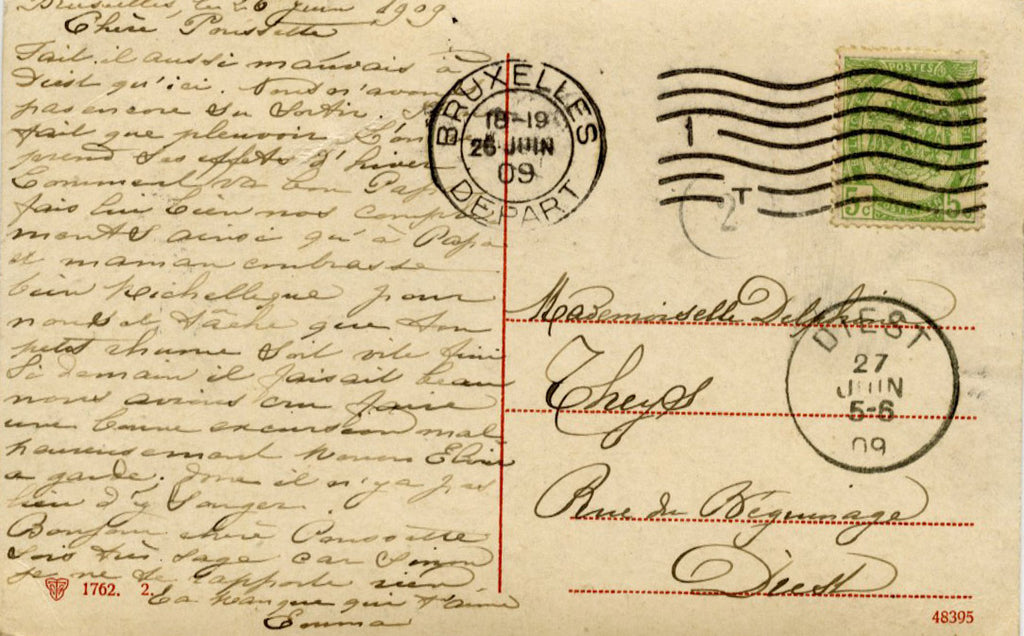 Bruxelles, le 26 Juin 1909
Chère Poussette
Fait-il aussi mauvais à
Diest qu'ici. Nous n'avons
pas encore su sortir. Il
fait que pleuvoir. L'on
prend ses effets d'hiver
Comment va bon Papa
fais lui bien nos compli
ments ainsi qu'à Papa
et maman embrasse
bien pour
nous et tâche que ton
petit rhume soit vite fini
Si demain il faisait beau
nous avions cru faire
une bonne excursion mal
heureusement
a garde. Donc il n'y a pas
lieu d'y songer.
Bonjour chère Poussette
sois très sage car sinon
je ne te rapporte rien
La qui t'aime
Emma
1762. 2.
BRUXELLES
18-19
26 JUIN
09
DEPART
1
T
2
POSTES
5c 5c
Mademoiselle Delphine
Theys
Rue du Béguinage
Diest
DIEST
27
JUIN
5-6
09
48395